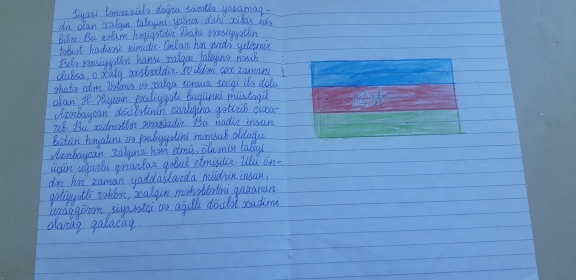 Siyasi tənəzzülə doğru sürətlə yaşamaq-
da olan xalqın taleyini yalnız dahi xilas edə
bilər. Bu kəlam həqiqətdir. Dahi şəxsiyyətlər
təbiət hadisəsi kimidir. Onlar hər əsrdə yetişmir.
Belə şəxsiyyətlər hansı xalqın taleyinə nəsib
olubsa, o xalq xoşbəxtdir. 50 ildən çox zamanı
əhatə edən Vətənə və xalqa sonsuz sevgi ilə dolu
olan H. Əliyevin fəaliyyəti bugünkü müstəqil
Azərbaycan dövlətinin varlığına gətirib çıxa-
rıb. Bu xidmətlər əvəzsizdir. Bu nadir insan
bütün həyatını və fəaliyyətini mənsub olduğu
Azərbaycan xalqına həsr etmiş, ölkəmin taleyi
üçün uğurlu qərarlar qəbul etmişdir. Ulu ön-
dər hər zaman yaddaşlarda müdrik insan,
qətiyyətli rəhbər, xalqın məhəbbətini qazanan
uzaqgörən siyasətçi və ağıllı dövlət xadimi
olaraq qalacaq.